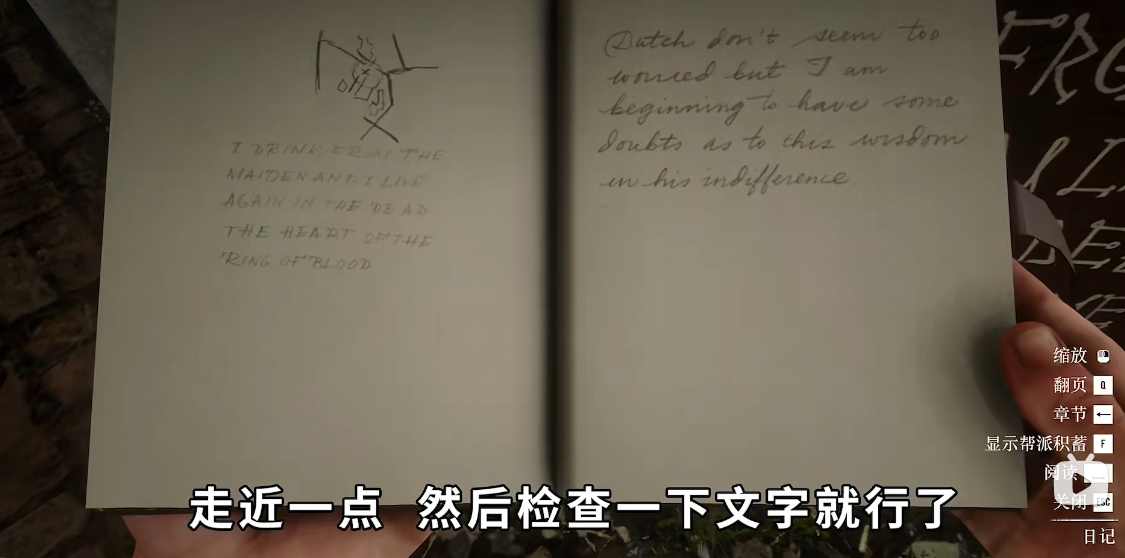 I DRINK FROM THE
MAIDEN AND I LIVE
AGAIN IN THE DEAD
THE HEART OF THE
RING OF BLOOD
Dutch don't seem too
worried but I am
beginning to have some
doubts as to this wisdom
in his indifference
缩放
翻页 Q
章节
显示帮派积蓄 F
阅读
关闭 ESC
日记
走近一点 然后检查一下文字就行了